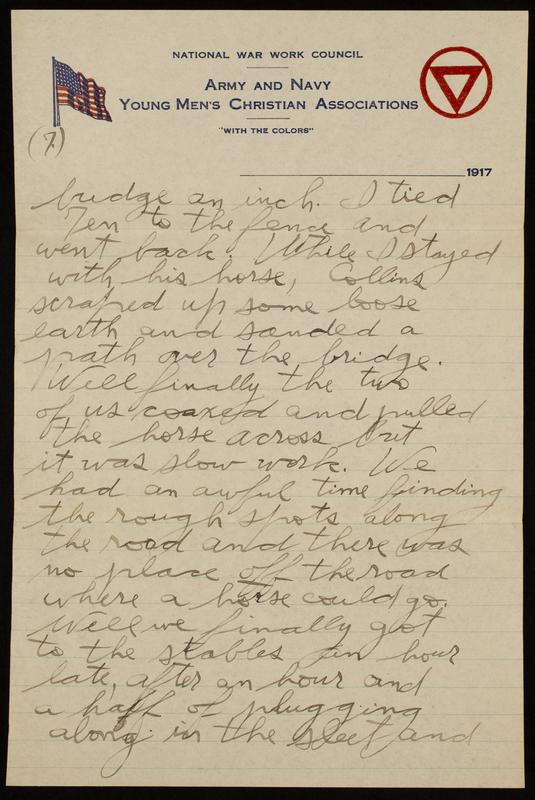 NATIONAL WAR WORK COUNCIL
ARMY AND NAVY
YOUNG MEN'S CHRISTIAN ASSOCIATIONS
"WITH THE COLORS"
(7)
1917
budge an inch. I tied
Ten to the fence and
went back. While I stayed
with his horse, Collins
scraped up some loose
earth and sanded a
path over the bridge.
Well finally the two
of us coaxed and pulled
the horse across but
it was slow work. We
had an awful time finding
the rough spots along
the road and there was
no place off the road
where a horse could go.
Well we finally got
to the stables an hour
late, after an hour and
a half of plugging
along in the sleet and